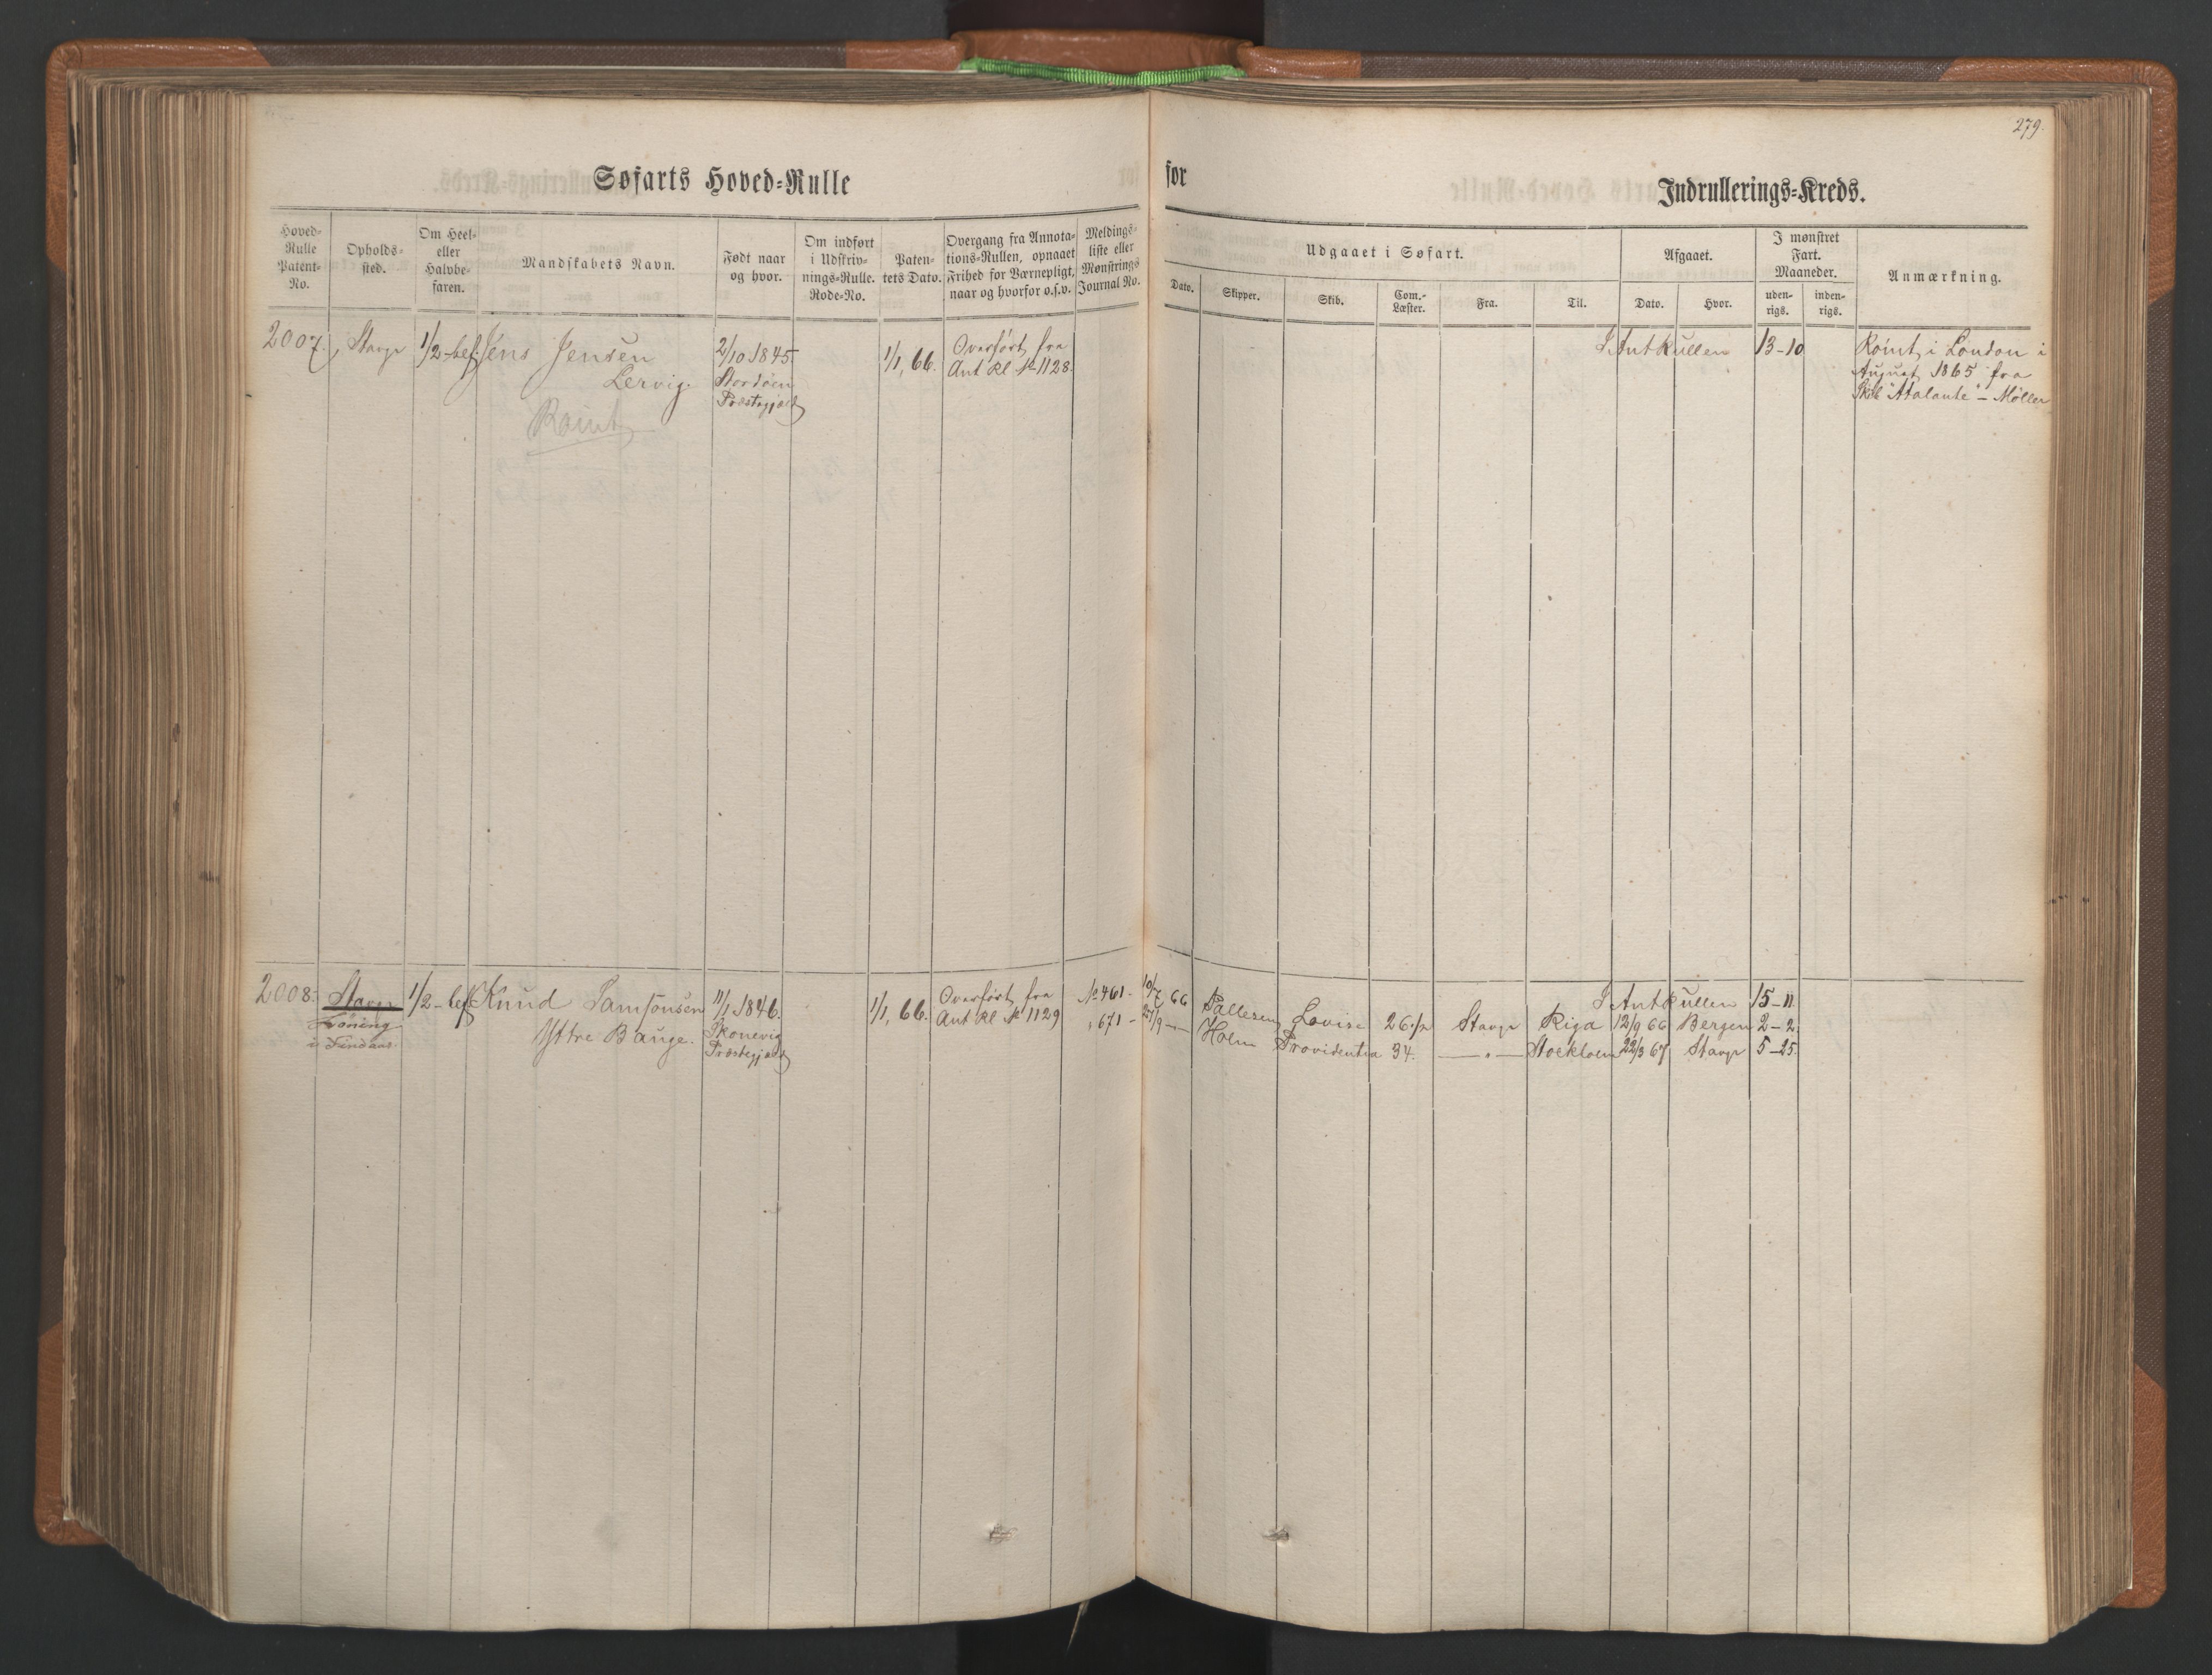 279.
Søfarts Hoved-Rulle
for
Indrullerings-Kreds.
Hoved-Rulle Patent-No.
Opholds-sted.
Om Heel- eller Halvbe-faren.
Mandskabets Navn.
Født naar og hvor.
Om indført i Udskriv-nings-Rulle. Rode-No.
Paten-tets Dato.
Overgang fra Annota-tions-Rullen, opnaaet Frihed for Værnepligt, naar og hvorfor o.s.v.
Meldings-liste eller Mønstrings Journal No.
Udgaaet i Søfart.
Dato.
Skipper.
Skib.
Com.-Læster.
Fra.
Til.
Afgaaet.
Dato.
Hvor.
I mønstret Fart. Maaneder.
uden-rigs.
inden-rigs.
Anmærkning.
2007. Stavgr 1/2-bef. Jens Jensen 2/10 1845 1/1, 66. Overført fra I Ant Rullen 13-10 Rømt i London i
Lervig. Stordöen Ant Rl No 1128. August 1865 fra
Præstegjæld Skib "Atalante" - Møller
Rømt
2008. Stavgr 1/2-bef Knud Samsonsen 11/1 1846. 1/1, 66. Overført fra No 461- 10/7 66 Pallesen Lovise 26 1/2 Stavgr Riga 12/9 66 Bergen 2-2.
I Ant Rullen 15-11.
i Findaas. Yttre Bauge. Skonevig Ant Rl No 1129 " 671- Holm Providentia 34. —"— Stockholm 22/3 67 Stavgr 5-25.
Præstegjæld